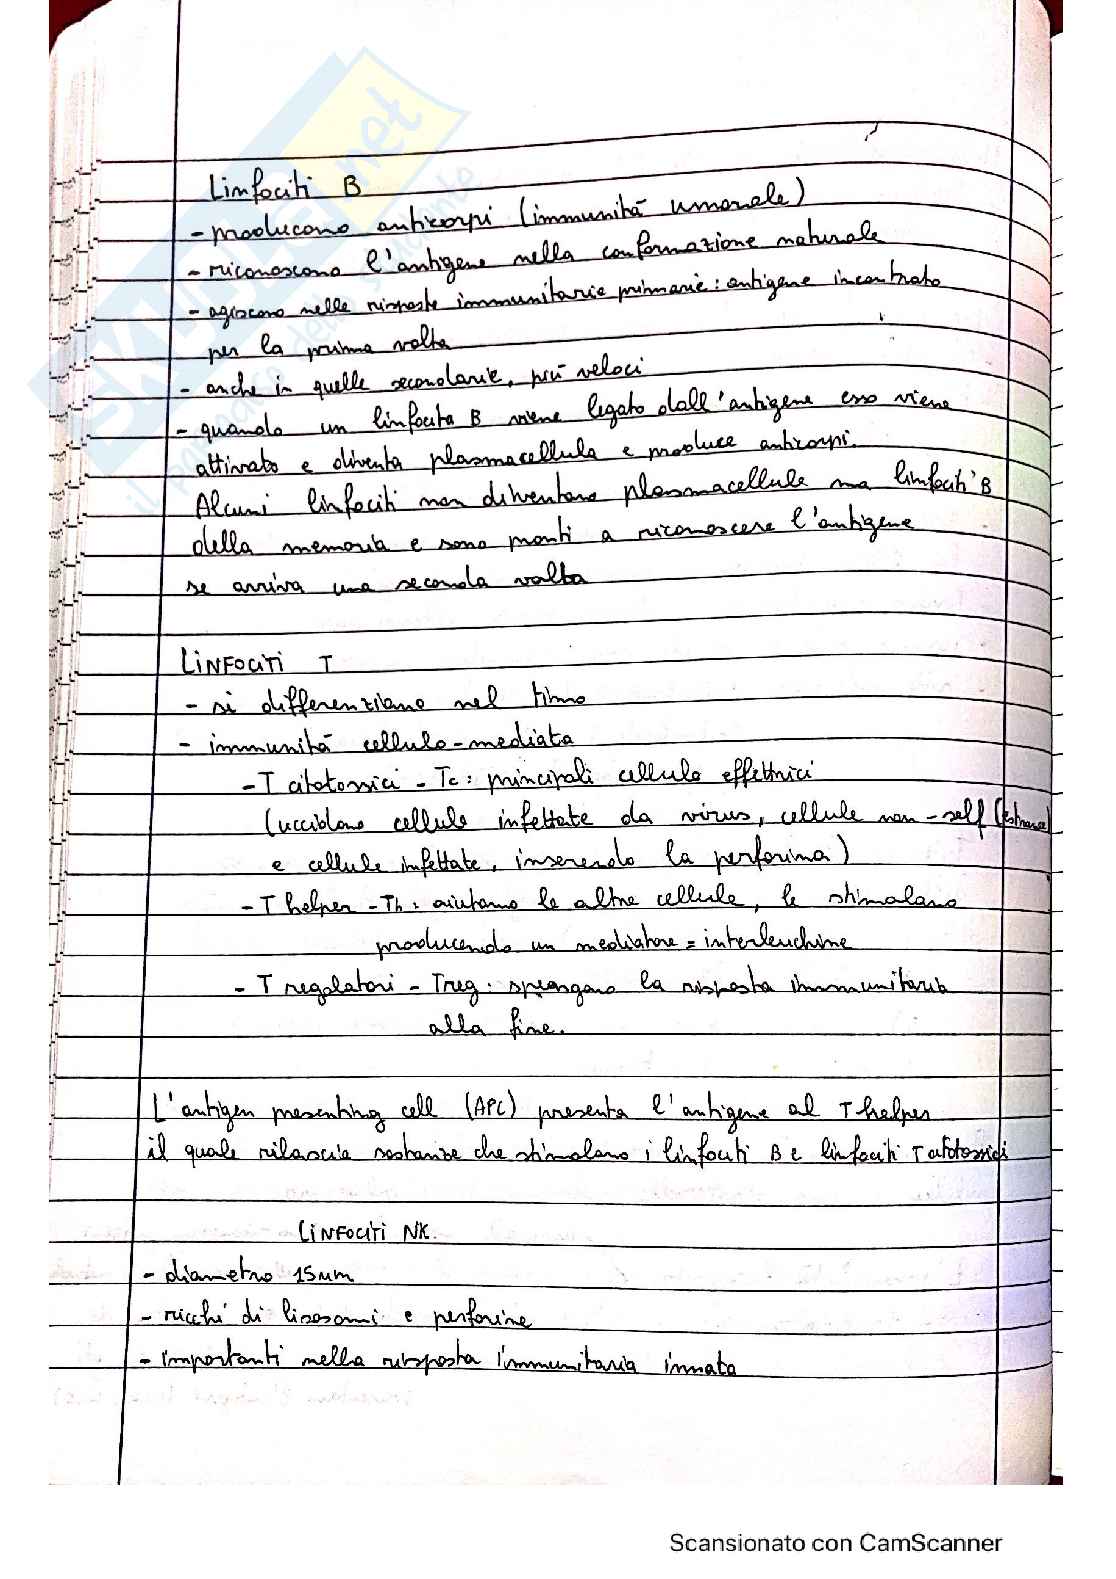 Linfociti B
- producono anticorpi (immunità umorale)
- riconoscono l'antigene nella conformazione naturale
- agiscono nelle risposte immunitarie primarie: antigene incontrato
per la prima volta
- anche in quelle secondarie, più veloci
- quando un linfocita B viene legato dall'antigene esso viene
attivato e diventa plasmacellula e produce anticorpi.
Alcuni linfociti non diventano plasmacellule ma linfociti B
della memoria e sono pronti a riconoscere l'antigene
se arriva una seconda volta
LINFOCITI T
- si differenziano nel timo
- immunità cellulo-mediata
- T citotossici - Tc: principali cellule effettrici
(uccidono cellule infettate da virus, cellule non-self (estranee)
e cellule infettate, inserendo la perforina)
- T helper - Th: aiutano le altre cellule, le stimolano
producendo un mediatore = interleuchine
- T regolatori - Treg: spengono la risposta immunitaria
alla fine.
L'antigen presenting cell (APC) presenta l'antigene al T helper
il quale rilascia sostanze che stimolano i linfociti B e linfociti T citotossici
LINFOCITI NK.
- diametro 15 µm
- ricchi di lisosomi e perforine
- importanti nella risposta immunitaria innata
Scansionato con CamScanner